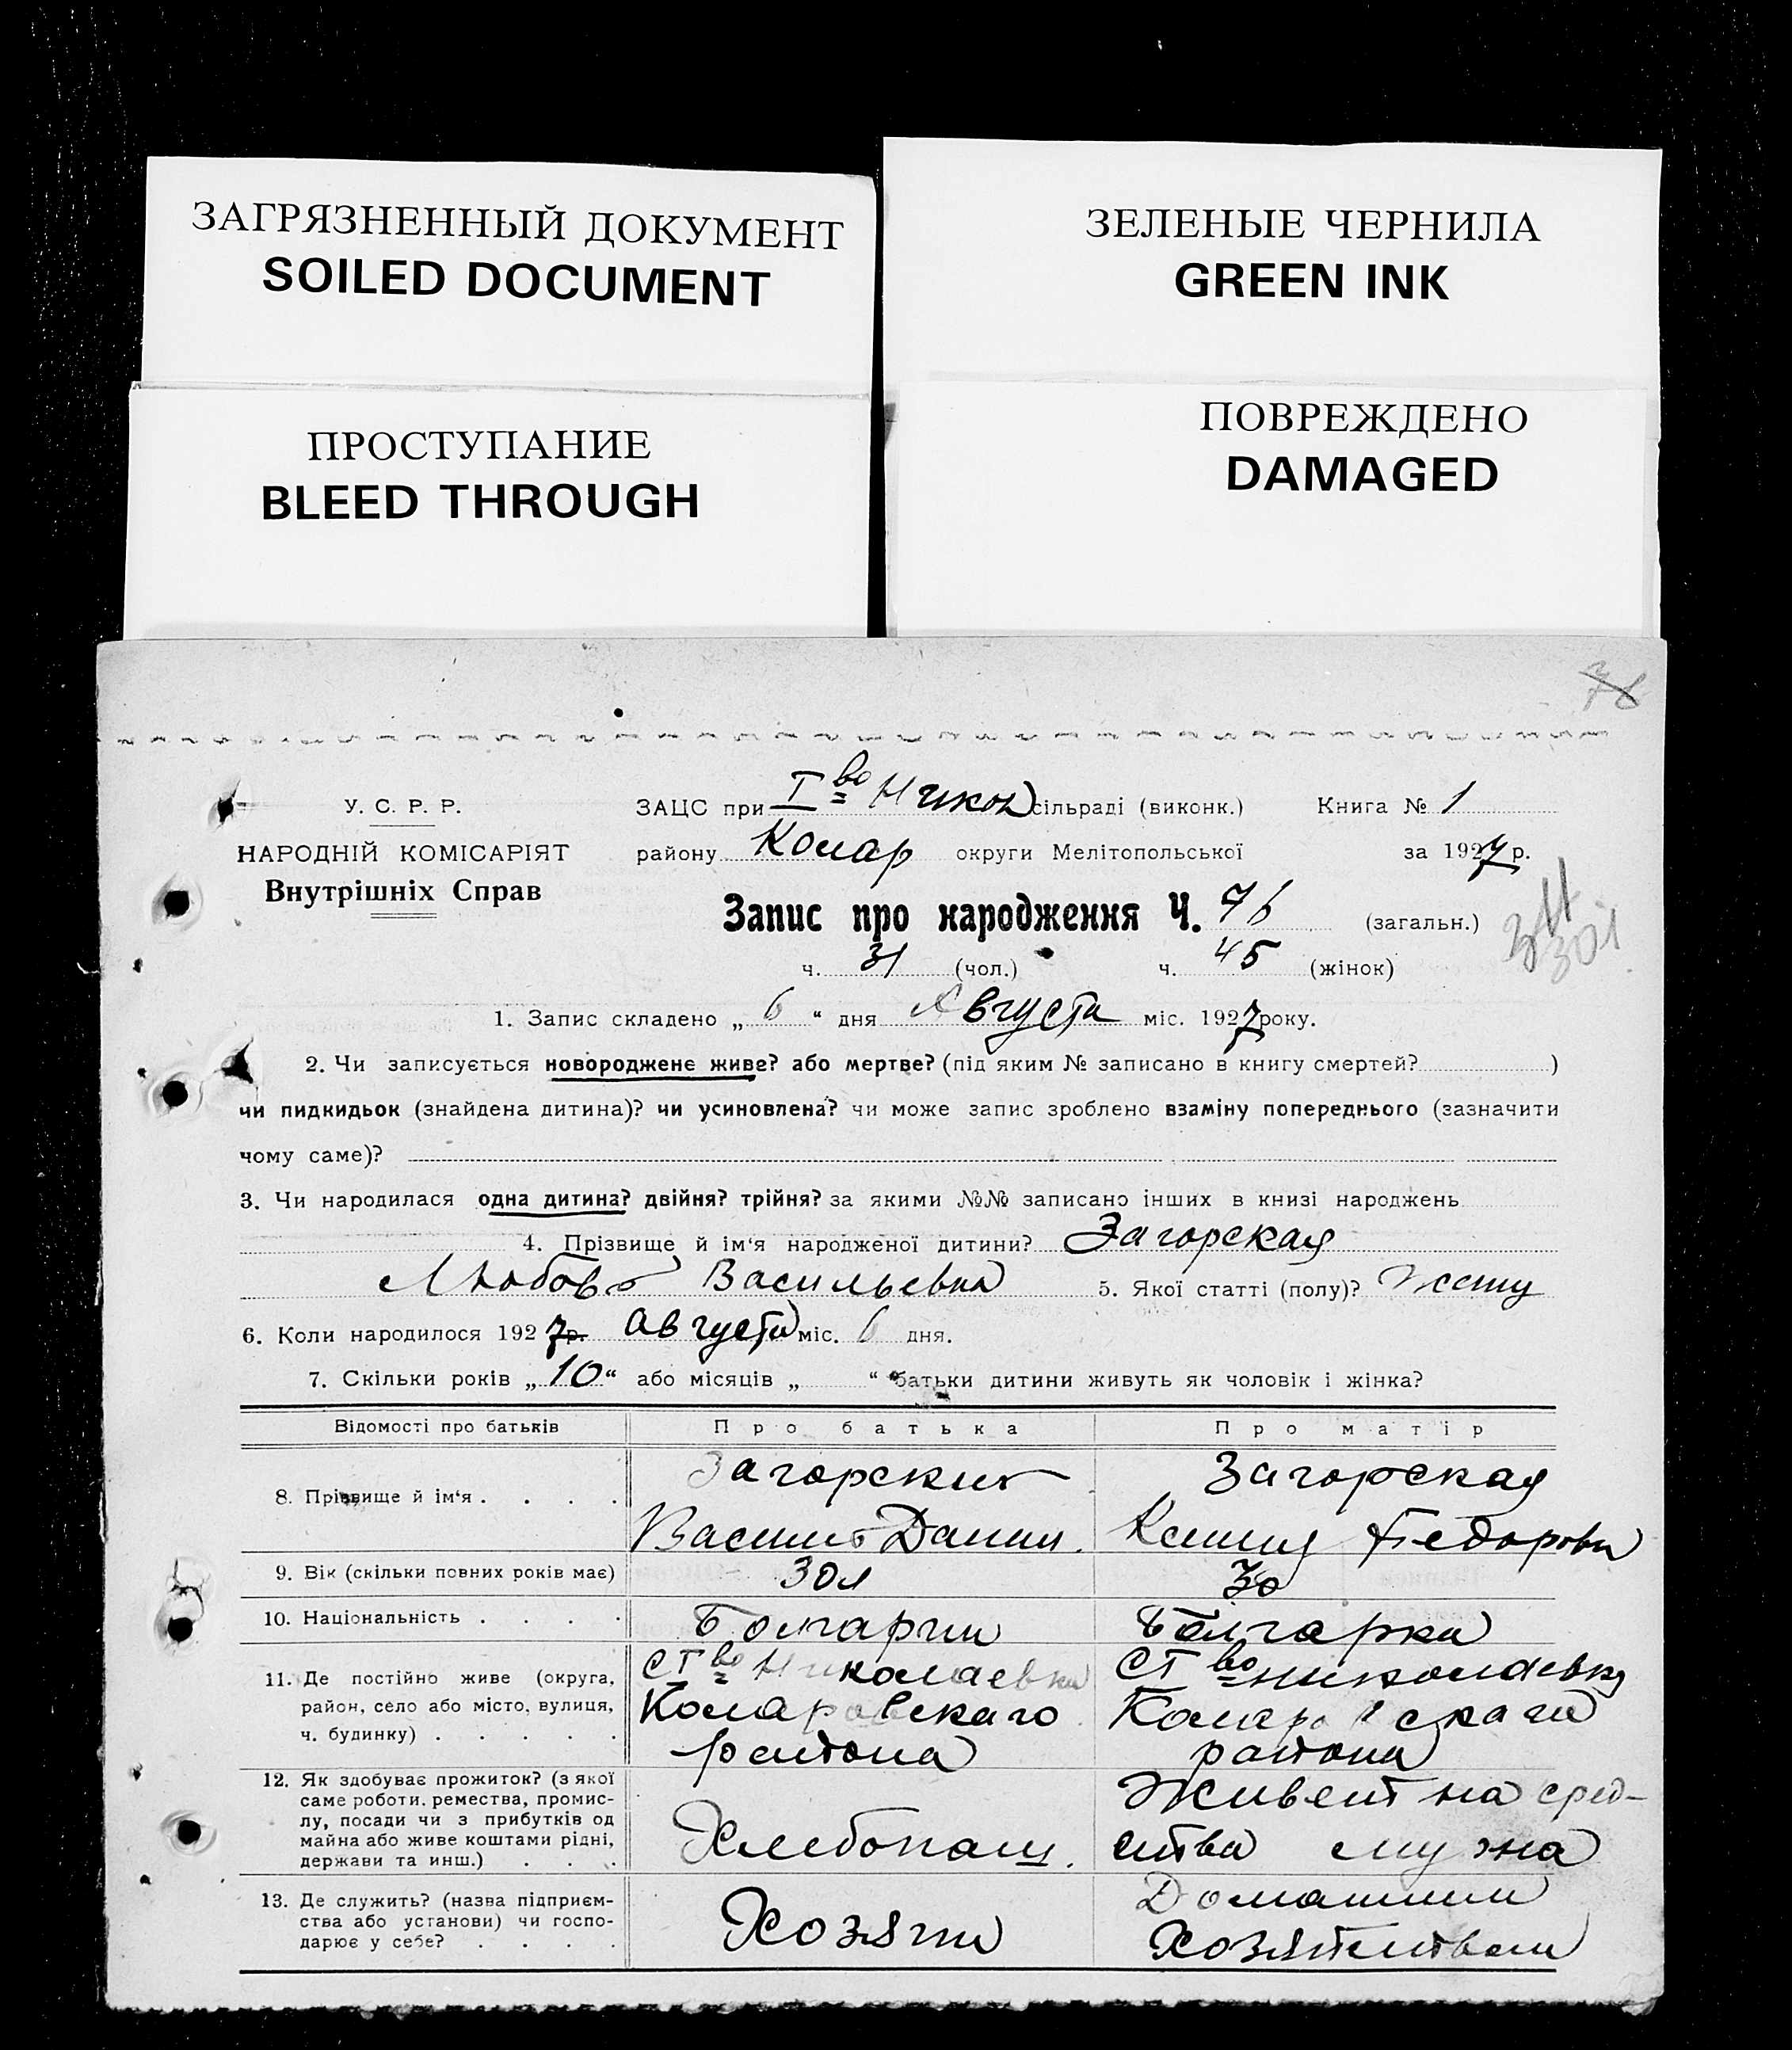 ЗАГРЯЗНЕННЫЙ ДОКУМЕНТ
SOILED DOCUMENT
ЗЕЛЕНЫЕ ЧЕРНИЛА
GREEN INK
ПРОСТУПАНИЕ
BLEED THROUGH
ПОВРЕЖДЕНО
DAMAGED
У. С. Р. Р.
НАРОДНІЙ КОМІСАРІЯТ
Внутрішніх Справ
ЗАЦС при І во Никол сільраді (виконк.) Книга № 1
району Колар округи Мелітопольської за 1927 р.
Запис про народження Ч. 76 (загальн.)
301
ч. 31 (чол.) ч. 45 (жінок)
1. Запис складено „ 6 “ дня Августа міс. 1927 року.
2. Чи записується новороджене живе? або мертве? (під яким № записано в книгу смертей? )
чи пидкидьок (знайдена дитина)? чи усиновлена? чи може запис зроблено взаміну попереднього (зазначити
чому саме)?
3. Чи народилася одна дитина? двійня? трійня? за якими №№ записано інших в книзі народжень
4. Прізвище й ім‘я народженої дитини? Загорская
Любовь Васильевна 5. Якої статті (полу)?
6. Коли народилося 1927 р. Августа міс. 6 дня.
7. Скільки років „ 10 “ або місяців „ “ батьки дитини живуть як чоловік і жінка?
Відомості про батьків Про батька Про матір
8. Прізвище й ім‘я . . . . Загорский Загорская
Василий Данил. Ксения Федоровн
9. Вік (скільки повних років має) 30 л 30
10. Національність . . . . Болгарин Болгарка
11. Де постійно живе (округа, район, село або місто, вулиця, ч. будинку) . . . . .
СТ во Николаевка СТ во николаевка
Коларовскаго Коларовскаго
района района
12. Як здобуває прожиток? (з якої саме роботи. ремества, промислу, посади чи з прибутків од майна або живе коштами рідні, держави та инш.) . . .
Хлебопаш. Живет на сред-
ства мужа
13. Де служить? (назва підприємства або установи) чи господарює у себе? . . . .
Хозяин Домашним
Хозяйством